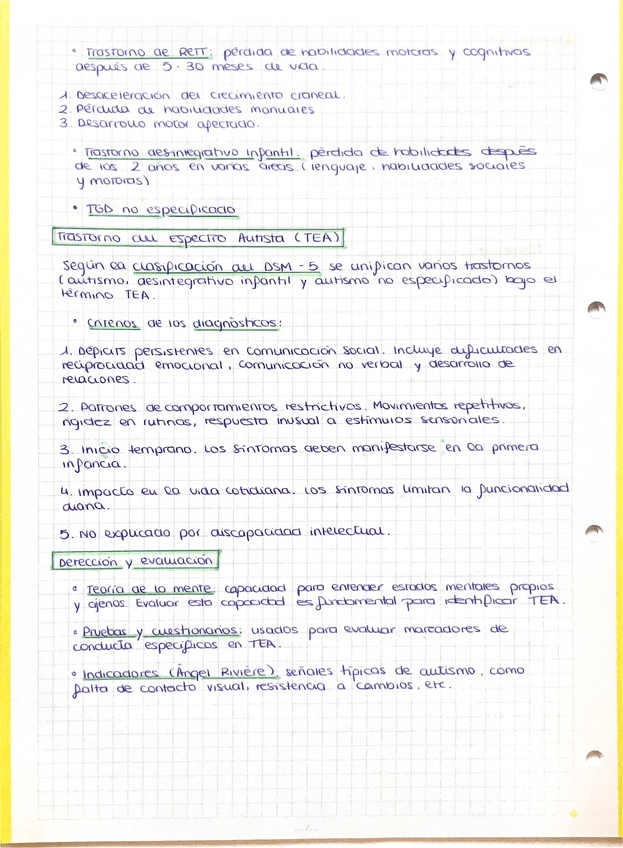 • Trastorno de RETT: pérdida de habilidades motoras y cognitivas
después de 5-30 meses de vida.
1. Desaceleración del crecimiento craneal.
2. Pérdida de habilidades manuales
3. Desarrollo motor afectado.
• Trastorno desintegrativo infantil: pérdida de habilidades después
de los 2 años en varias áreas (lenguaje, habilidades sociales
y motoras)
• TGD no especificado
Trastorno del Espectro Autista (TEA)
Según la clasificación del DSM-5 se unifican varios trastornos
(autismo, desintegrativo infantil y autismo no especificado) bajo el
término TEA.
• Criterios de los diagnósticos:
1. Déficits persistentes en comunicación social. Incluye dificultades en
reciprocidad emocional, comunicación no verbal y desarrollo de
relaciones.
2. Patrones de comportamientos restrictivos. Movimientos repetitivos,
rigidez en rutinas, respuesta inusual a estímulos sensoriales.
3. Inicio temprano. Los síntomas deben manifestarse en la primera
infancia.
4. Impacto en la vida cotidiana. Los síntomas limitan la funcionalidad
diaria.
5. No explicado por discapacidad intelectual.
Detección y evaluación
• Teoría de la mente: capacidad para entender estados mentales propios
y ajenos. Evaluar esta capacidad es fundamental para identificar TEA.
• Pruebas y cuestionarios: usados para evaluar marcadores de
conducta específicos en TEA.
• Indicadores (Ángel Rivière), señales típicas de autismo, como
falta de contacto visual, resistencia a cambios, etc.
.../...